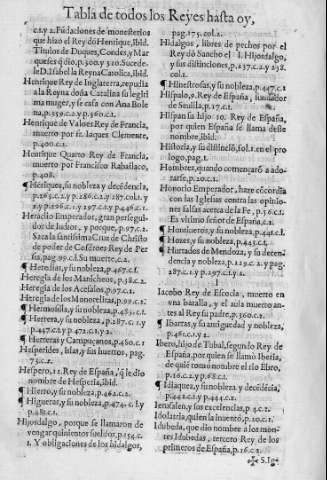 Tabla de todos los Reyes hasta oy,
c.1.y 2. Fundaciones de monesterios
que hizo el Rey dō Henrique, ibid.
Titulos de Duques, Condes, y Mar
queses q̃ dio, p.300.y 320. Sucede-
le D. Isabel la Reyna Catolica, ibid.
Henrique Rey de Inglaterra, repudia
a la Reyna doña Catalina su legiti
ma muger, y se casa con Ana Bole
na, p.359.c.2.y p.360.c.1.
Henrique de Valoes Rey de Francia,
muerto por fr. Iaques Clemente,
p.400.c.1.
Henrique Quarto Rey de Francia,
muerto por Francisco Rabaslaco,
p.408.
¶ Heriques, su nobleza y decēdencia,
Heraclio Emperador, gran persegui
dor de Iudios, y porque, p.97.c.2.
Saca la santissima Cruz de Christo
de poder de Cosdroes Rey de Per
sia, pag.99.c.1. Su muerte, c.2.
¶ Heredias, y su nobleza, p.467.c.1.
Heregia de los Manicheos, p.38.c.2.
Heregia de los Acefalos, p.97.c.2.
Heregia de los Monotelitas, p.99.c.1.
¶ Hermosilla, y su nobleza, p.483.c.1.
¶ Herrera, y su nobleza, p.287.c.1.y
p.447.c.1.y 472.c.1.y 2.
¶ Herreras y Campuçanos, p.460.c.1
Hesperides, islas, y sus huertos, pag.
73.c.2.
Hespero, 12. Rey de España, q̃ le dio
nombre de Hesperia, ibid.
¶ Hierro, y su nobleza, p.462.c.1.
¶ Higueras, y su nobleza, p.474.c.1.y
p.482.c.1.
Hijodalgo, porque se llamaron de
vengar quinientos sueldos, p.154.c.
1. Y obligaciones de los hidalgos,
pag.175.col.2.
Hidalgos, libres de pechos por el
Rey dō Sancho el I. Hijodalgo,
y sus distinciones, p.237.c.2.y 238.
col.1.
¶ Hinestrosas, y su nobleza, p.447.c.1
Hispalo, 9. Rey de España, fundador
de Sevilla, p.17.c.1.
Hispan su hijo 10. Rey de España,
por quien España se llama deste
nombre, ibid.
Historia, y su distinciō, fol.1. en el pro
logo, pag.1.
Hombres, quando començarō a ado-
rarse, p.20.c.1.
Honorio Emperador, haze cōcordia
con las Iglesias contra las opinio-
nes falsas acerca de la Fe, p.16.c.1.
Es vltimo señor de España, c.2.
¶ Hontiueros, y su nobleza, p.441.c.1.
¶ Hozes, y su nobleza, p.425.c.1.
¶ Hurtados de Mendoza, y su decen-
dencia y nobleza, p.129.c.2.y pag.
287.c.1.y 197.c.1.y 2.
I
Iacobo Rey de Escocia, muerto en
vna batalla, y el aula muerto an-
tes al Rey su padre, p.360.c.2.
¶ Ibarras, y su antiguedad y nobleza,
p.461.c.1.y 2.
Ibero, hijo de Tubal, segundo Rey de
España, por quien se llamò Iberia,
de quiē tomo nombre el rio Ebro,
p.16.c.2.y p.68.c.1.
¶ Idiaquez, y su nobleza y decēdēcia,
p.442.c.1.y 444.c.1.
Ierusalen, y sus excelencias, p.54.c.2.
Idolatria, quien la inuentò, p.10.c.1.
Idubeda, que dio nombre a los mon-
tes Idubedas, tercero Rey de los
primeros de España, p.16.c.2.